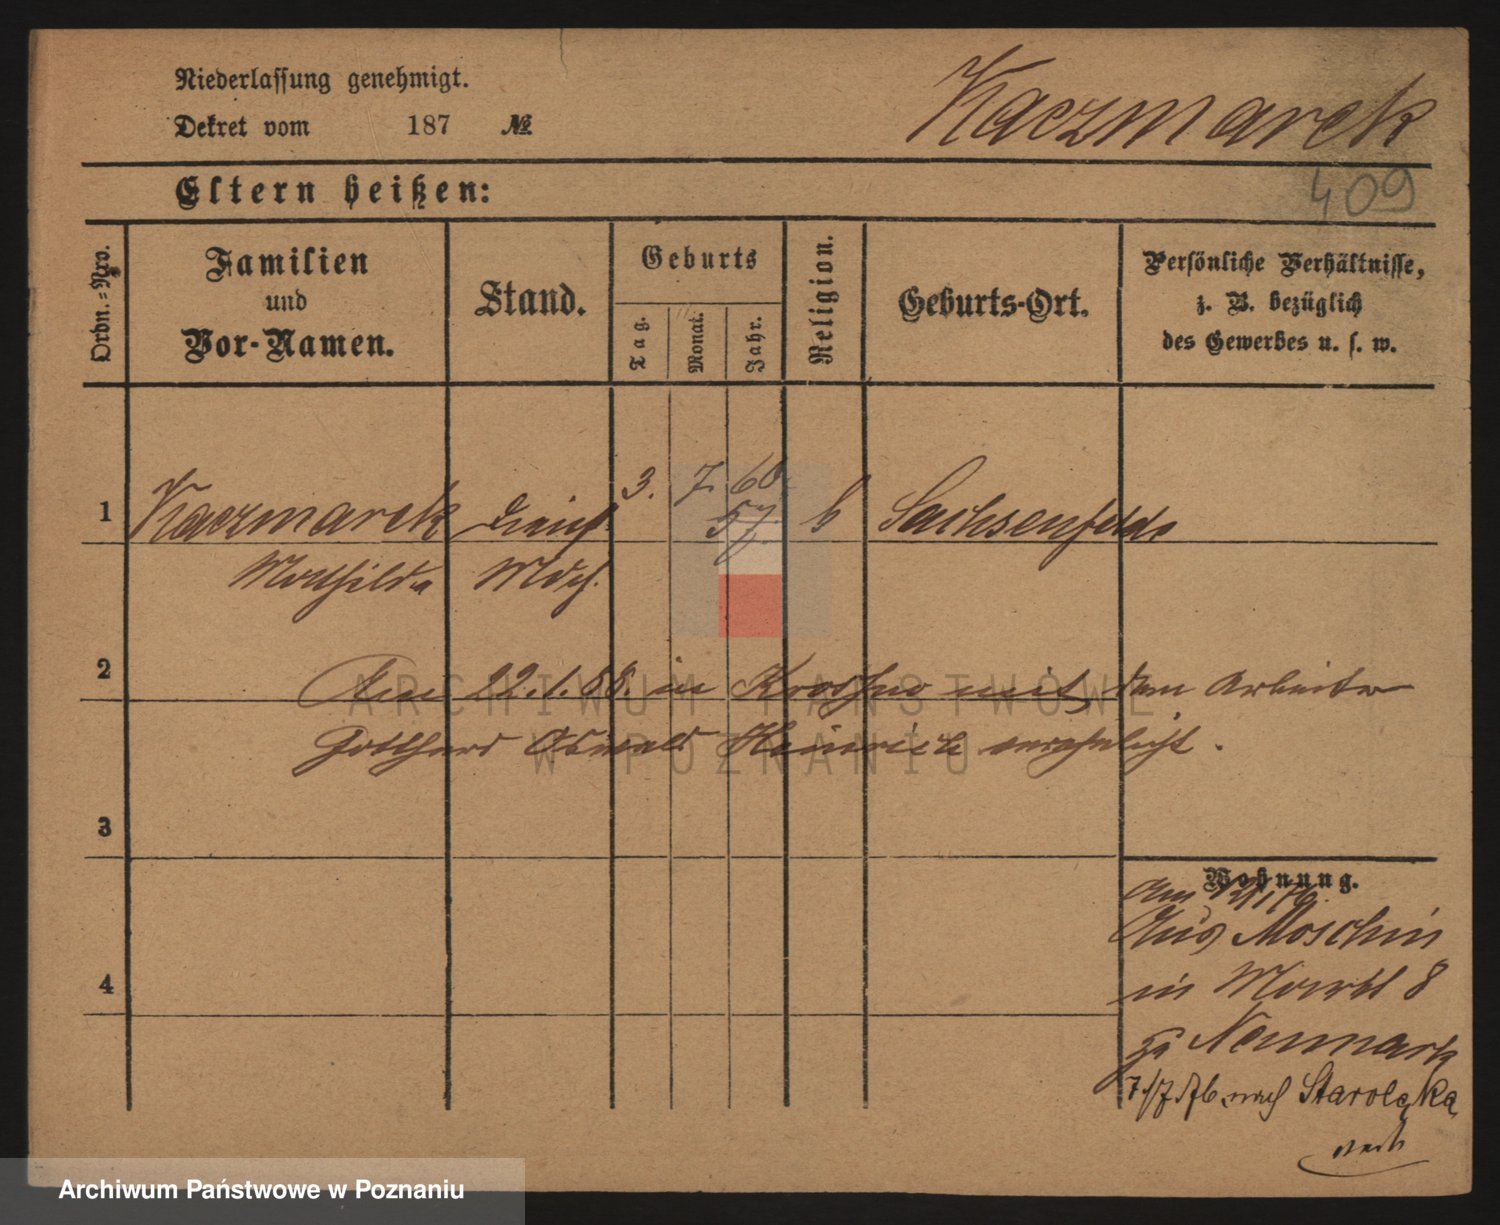 Niederlassung genehmigt.
Kaczmarek
Dekret vom 187 №
409
Eltern heißen:
Ordn.-Nro.
Familien
und
Vor-Namen.
Stand.
Geburts
Tag.
Monat.
Jahr.
Religion.
Geburts-Ort.
Persönliche Verhältnisse,
z. B. bezüglich
des Gewerbes u. s. w.
3. 7. 60.
57
1 Kaczmarek Dienst k Sachsenfelde
Mathilda Mdch.
2
Am 22.1.88. in Krosno mit dem Arbeiter
Gotthard Oswald Heinrich verehelicht.
ARCHIWUM PAŃSTWOWE
W POZNANIU
3
Wohnung.
Am
Aus Moschin
4
in Markt 8
zu Neumark
7/7 76 nach Starolęka
Archiwum Państwowe w Poznaniu